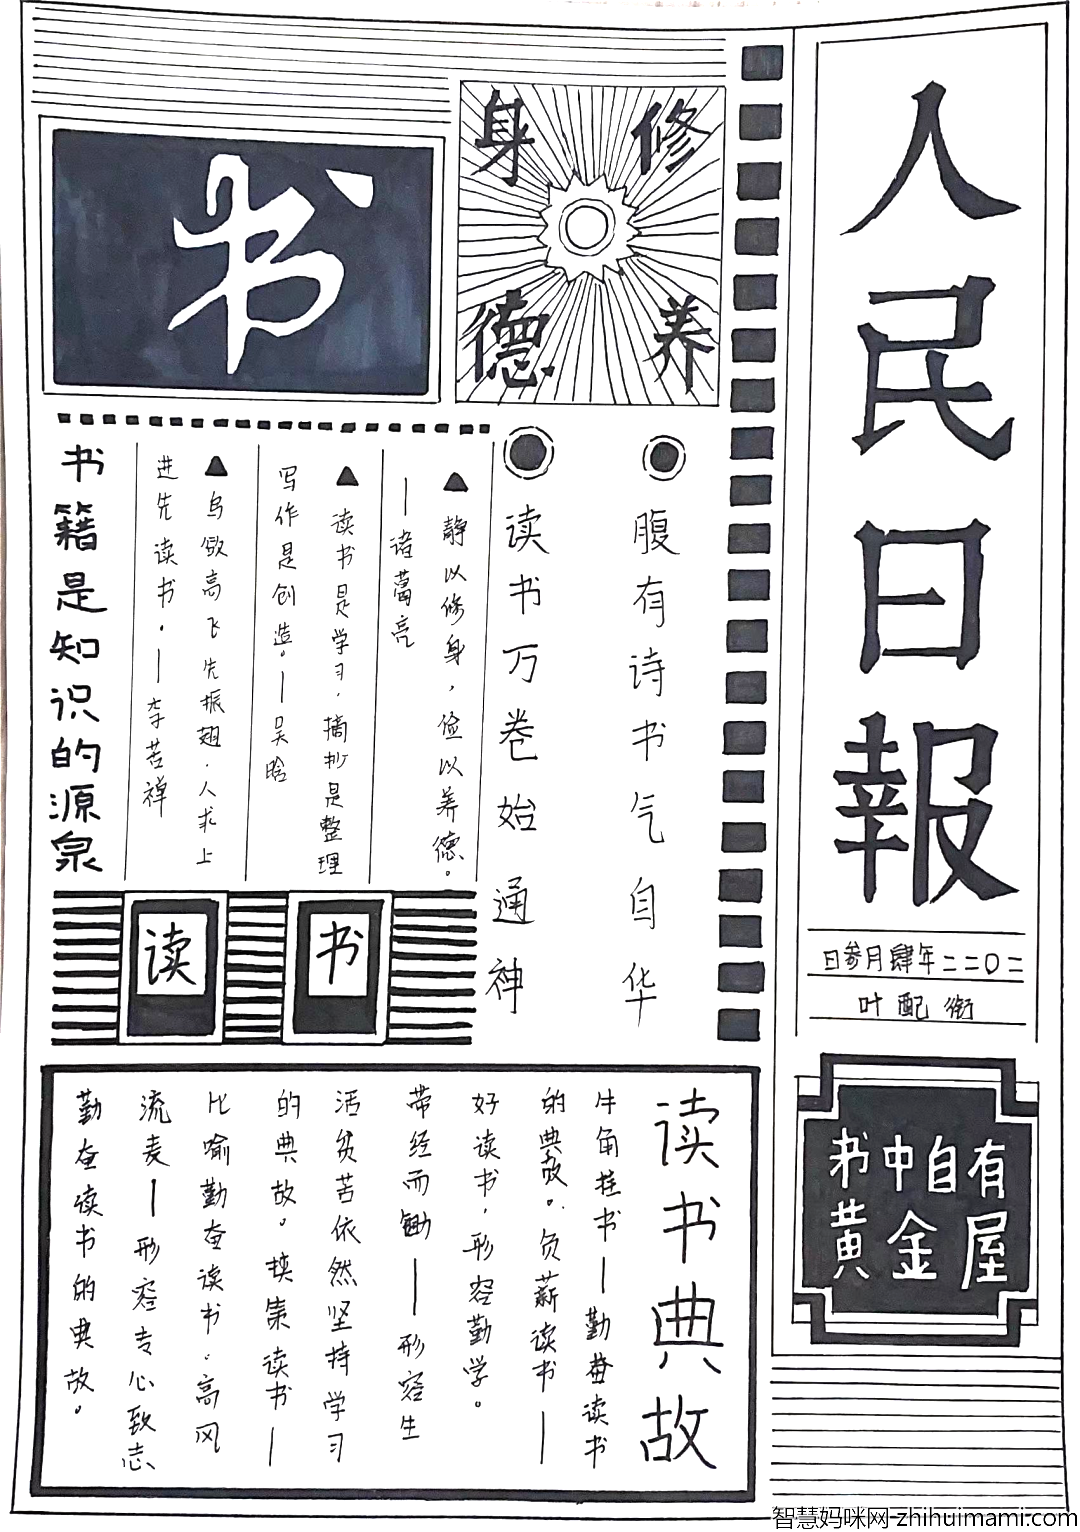 人民日報
二〇二二年肆月叁日
叶配衔
书中自有
黄金屋
修身
养德
书
腹有诗书气自华
读书万卷始通神
▲静以修身，俭以养德。
—诸葛亮
▲读书是学习，摘抄是整理
写作是创造。—吴晗
▲鸟欲高飞先振翅，人求上
进先读书。—李苦禅
书籍是知识的源泉
读书
读书典故
牛角挂书—勤奋读书
的典故。负薪读书—
好读书，形容勤学。
带经而锄——形容生
活贫苦依然坚持学习
的典故。挟策读书—
比喻勤奋读书。高风
流麦—形容专心致志
勤奋读书的典故。
智慧妈咪网-zhihuimami.com